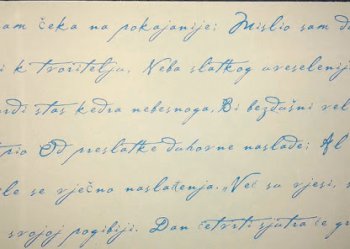 am čeka na pokajanije; Mislio sam di
i k tvoritelju, Neba slatkog uveselenij
rdi stas kedra nebesnoga, B i bezdušni vel
trio Od preslatke duhovne naslade; Al
le se vječno naslaženja. „Već su vjesi, s
svojoj pogibiji. Dan četvrti sjutra će gr